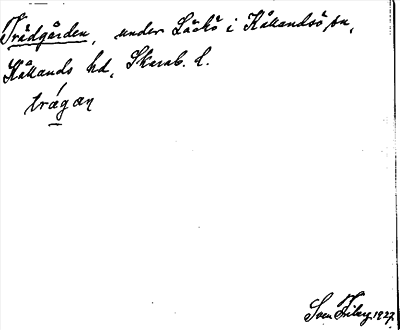 Trädgården, under Läckö i Kållandsö sn,
Kållands hd, Skarab. l.
trágan
Sam 1927.